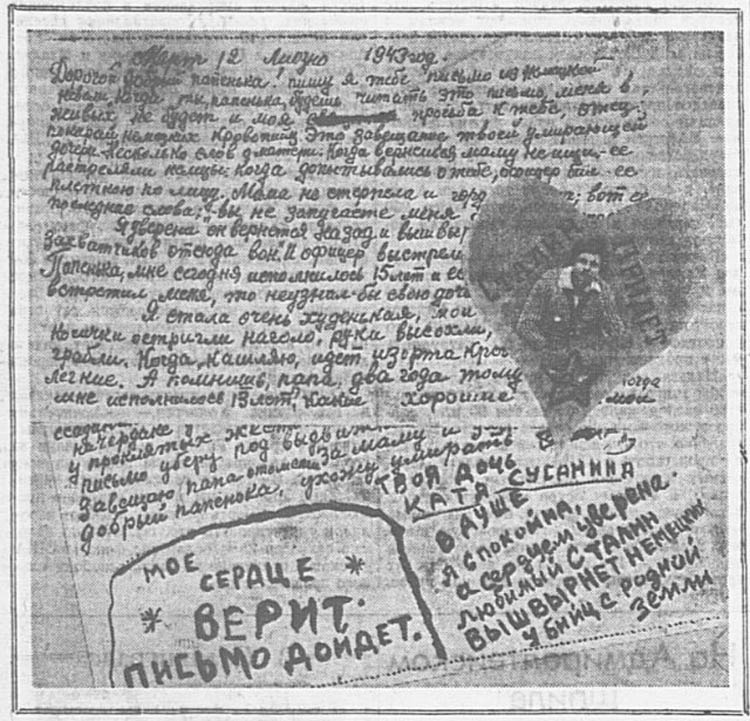 Март, 12 Лиозно 1943 год.
Дорогой, добрый папенька! пишу я тебе письмо из немецкой
неволи. Когда ты, папенька, будешь читать это письмо, меня в
живых не будет и моя просьба к тебе, отец:
покарай немецких кровопийц. Это завещание твоей умирающей
дочери. Несколько слов о матери: Когда вернешься, маму не ищи. ее
растреляли немцы: когда допытывались о тебе, офицер бил ее
плеткою по лицу. Мама не стерпела и вот ее
последние слова: "вы не запугаете меня
Я уверена он вернется назад и вышвыр
захватчиков отсюда вон. И офицер выстрели
Папенька, мне сегодня исполнилось 15 лет и ес
встретил меня, то неузнал-бы свою доч
Я стала очень худенькая, мои
Косички остригли наголо, руки высохли,
грабли. Когда кашляю, идет изо рта кро
легкие. А помнишь, папа, два года тому когда
мне исполнилось 13 лет. Какие хорошие мои
на чердаке
у проклятых
письмо уберу под
завещаю, папа отомсти за маму и
добрый папенька, ухожу умирать
Твоя дочь
Катя Сусанина
В душе
я спокойна,
а сердцем уверена.
любимый Сталин
вышвырнет немецких
убийц с родной
земли
МОЕ
СЕРДЦЕ
ВЕРИТ.
ПИСЬМО ДОЙДЕТ.
СТАЛИН ПРИДЕТ